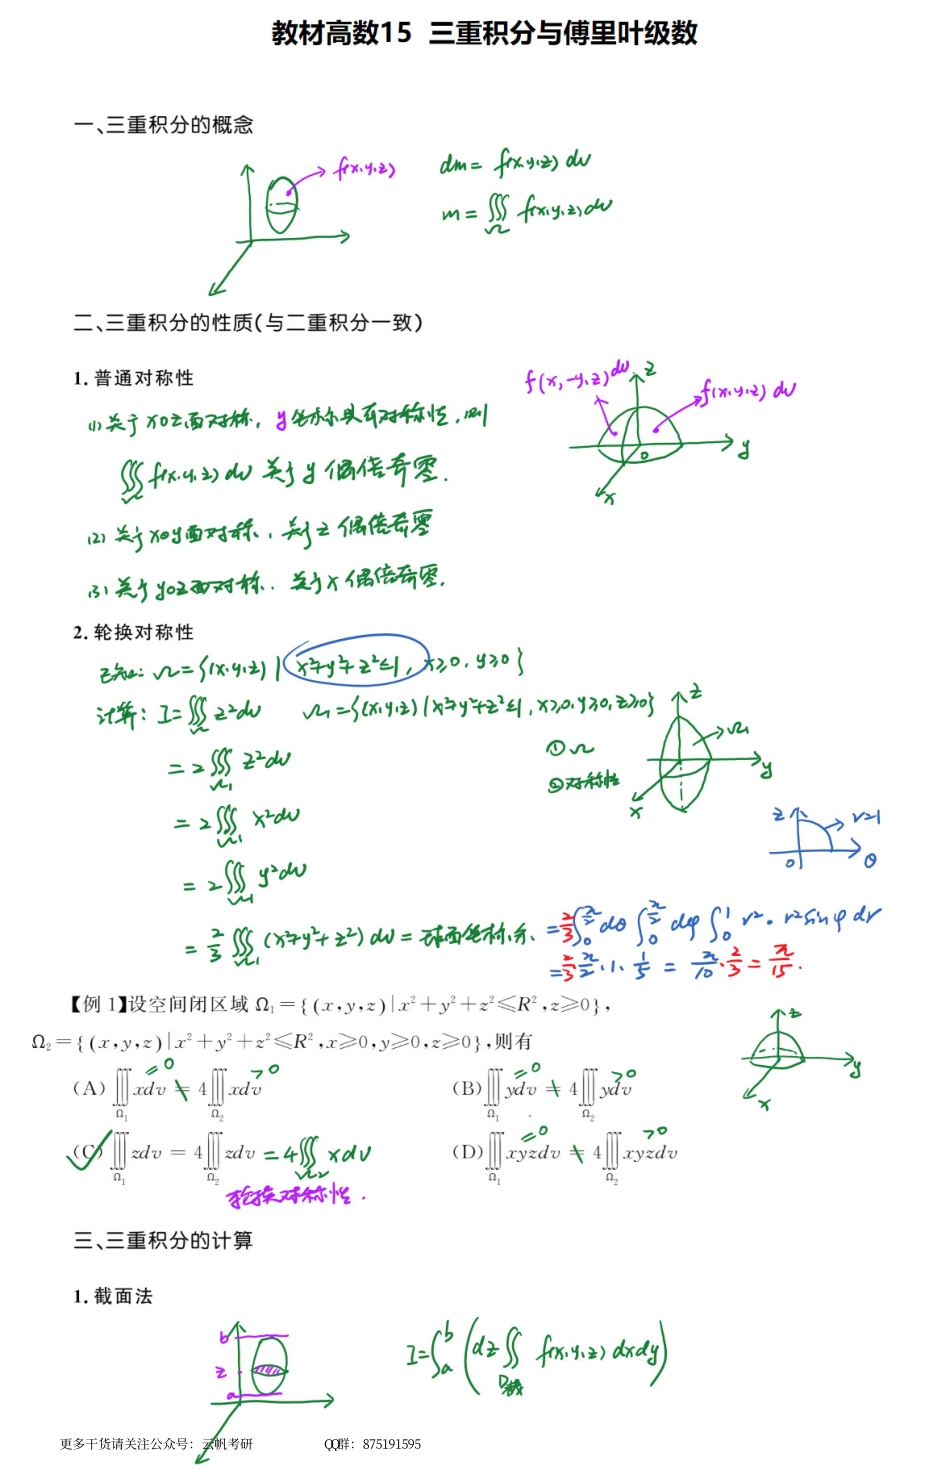 教材高数15 三重积分与傅里叶级数
一、三重积分的概念
f(x,y,z)
dm = f(x,y,z) dv
m = ∭_Ω f(x,y,z) dv
二、三重积分的性质(与二重积分一致)
1. 普通对称性
f(x,-y,z)dv z
f(x,y,z) dv
(1) 关于xoz面对称, y坐标具有对称性, 则
y
o
x
∭_Ω f(x,y,z) dv 关于y偶倍奇零.
(2) 关于xoy面对称, 关于z偶倍奇零
(3) 关于yoz面对称. 关于x偶倍奇零.
2. 轮换对称性
已知: Ω={(x,y,z) | x²+y²+z²≤1, x≥0, y≥0}
计算: I=∭_Ω z²dv Ω₁={(x,y,z)|x²+y²+z²≤1, x≥0,y≥0,z≥0}
z
Ω₁
= 2∭_Ω₁ z²dv
① Ω
y
② 对称性
x
= 2∭_Ω₁ x²dv
z r=1
0 θ
= 2∭_Ω₁ y²dv
= 2/3 ∭_Ω₁ (x²+y²+z²) dv = 球面坐标系、 = 2/3 ∫_0^{π/2} dθ ∫_0^{π/2} dφ ∫_0^1 r²·r²sinφ dr
= 2/3 π/2·1·1/5 = π/10·2/3 = π/15.
【例 1】设空间闭区域 Ω₁={(x,y,z)|x²+y²+z²≤R²,z≥0},
Ω₂={(x,y,z)|x²+y²+z²≤R²,x≥0,y≥0,z≥0},则有
z
y
x
=0 >0
(A) ∭_Ω₁ xdv = 4∭_Ω₂ xdv
=0 >0
(B) ∭_Ω₁ ydv = 4∭_Ω₂ ydv
(C) ∭_Ω₁ zdv = 4∭_Ω₂ zdv = 4∭_Ω₂ xdv
轮换对称性.
=0 >0
(D) ∭_Ω₁ xyzdv = 4∭_Ω₂ xyzdv
三、三重积分的计算
1. 截面法
b
z
a
I=∫_a^b (dz ∬_D截 f(x,y,z) dxdy)
更多干货请关注公众号：云帆考研 QQ群：875191595